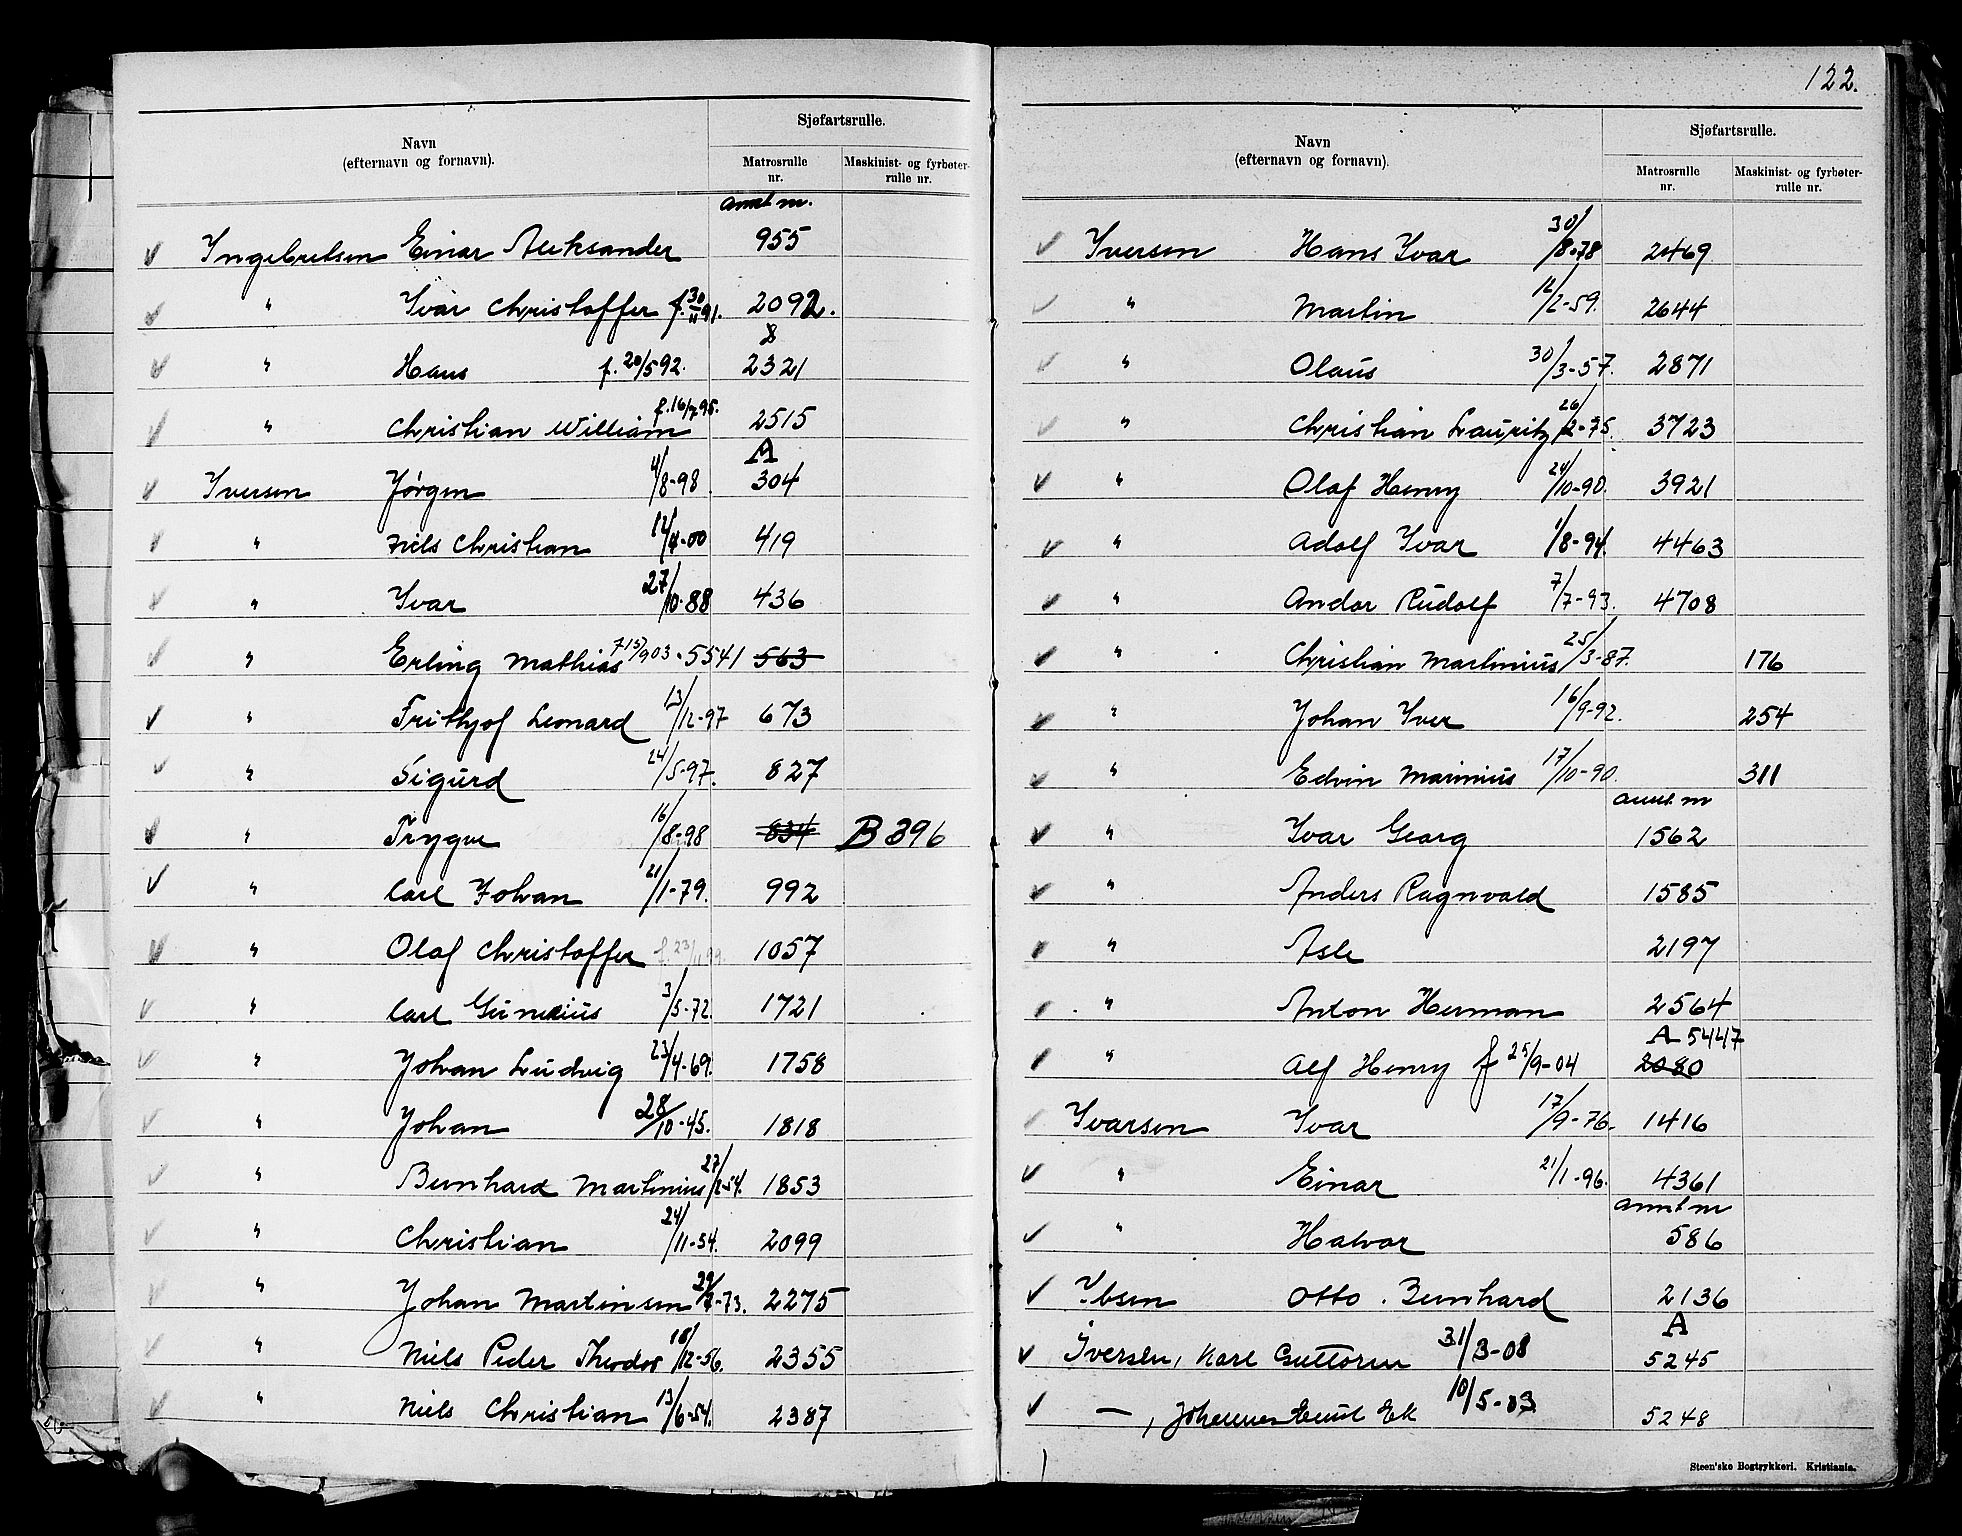 Navn
(efternavn og fornavn).
Sjøfartsrulle.
Matrosrulle nr.
Maskinist- og fyrbøter-rulle nr.
annt m.
Ingebretsen Einar Aleksander 955
" Ivar Christoffer f. 30/11 91. 2092.
" Hans f. 20/5 92. 2321
" Christian William f. 16/7 95. 2515
A
Iversen Jørgen 4/8-98 304
" Niels Christian 12/4-00 419
" Ivar 27/10-88 436
" Erling Mathias f 15/9 03 - 5541 563
" Frithjof Leonard 13/12-97 673
" Sigurd 24/5-97. 827
" Trygve 16/8-98 834 B 396
" Carl Johan 21/1-79. 992
" Olaf Christoffer f. 23/11 99 1057
" Carl 3/5-72. 1721
" Johan Ludvig 23/4-69. 1758
" Johan 28/10-45. 1818
" Bernhard Martinius 27/2-54. 1853
" Christian 24/11-54. 2099
" Johan Martinsen 29/7-73. 2275
" Niels Peder Theodor 18/12-56. 2355
" Niels Christian 13/6-54. 2387
122.
Navn
(efternavn og fornavn).
Sjøfartsrulle.
Matrosrulle nr.
Maskinist- og fyrbøter-rulle nr.
Iversen Hans Ivar 30/8-78 2469
" Martin 12/2-59. 2644
" Olaus 30/3-57. 2871
" Christian Lauritz 26/2-75. 3723
" Olaf Henry 24/10-90. 3921
" Adolf Ivar 1/8-94. 4463
" Andor Rudolf 7/7-93. 4708
" Christian Martinius 25/3-87. 176
" Johan Iver 16/9-92. 254
" Edvin Marinius 17/10-90. 311
annt m
" Ivar Georg 1562
" Anders Ragnvald 1585
" Asle 2197
" Anton Herman 2564
A 5447
" Alf Henry f 25/9-04 2080
Ivarsen Ivar 17/9-76. 1416
" Einar 21/1-96. 4361
annt m
" Halvor 586
Ibsen Otto Bernhard 2136
A
Iversen, Karl Guttorm 31/3-08 5245
— , Johannes Emil Ek 10/5-03 5248
Steen'ske Bogtrykkeri. Kristiania.